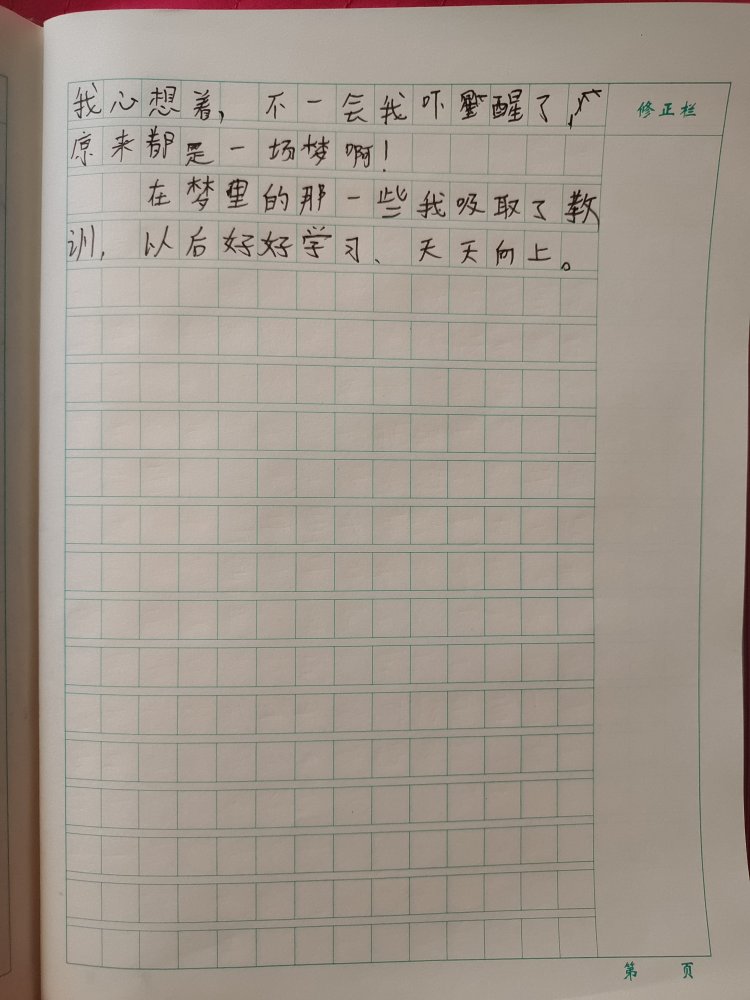 我心想着，不一会我吓醒了
原来都是一场梦啊！
在梦里的那一些我吸取了教
训，以后好好学习、天天向上。
修正栏
第 页